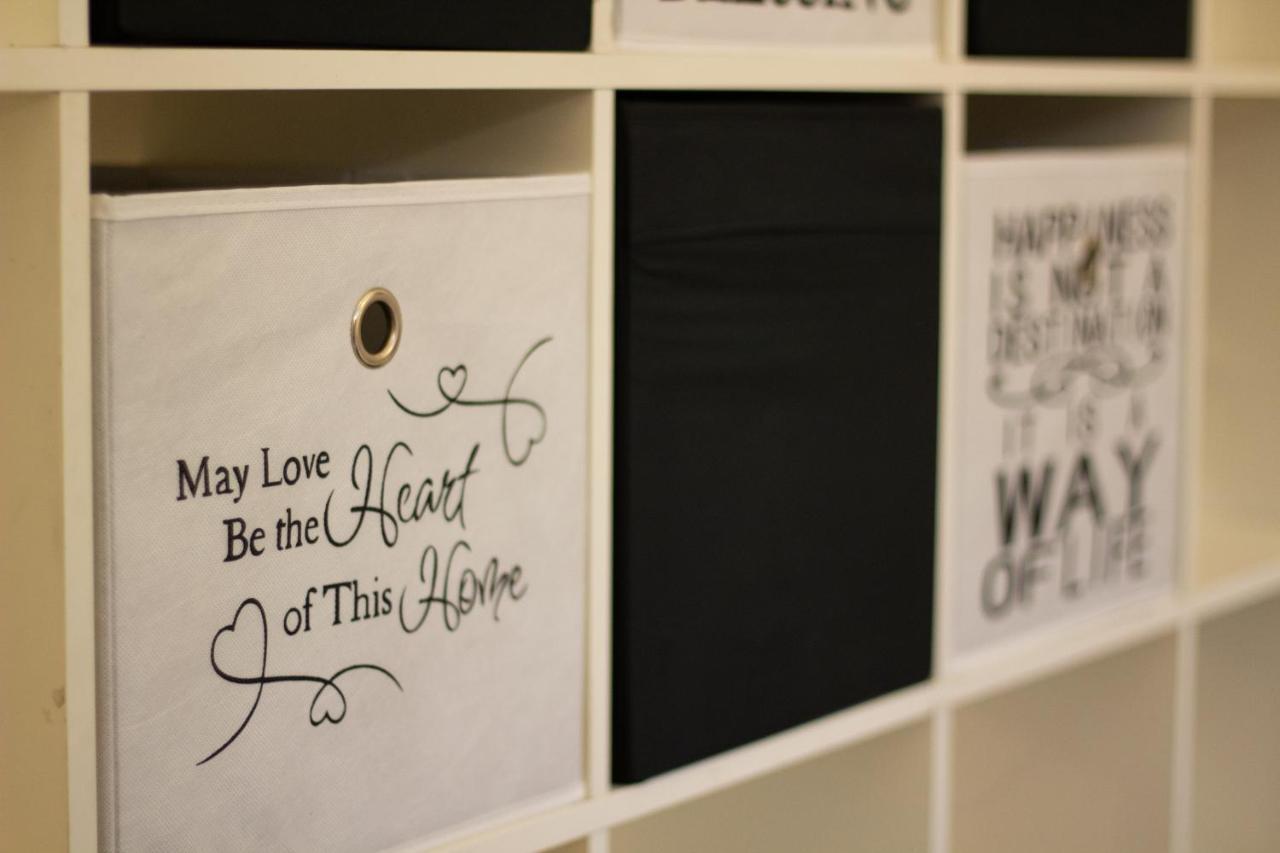 May Love
Be the Heart
of This Home
HAPPINESS
IS NOT A
DESTINATION
IT IS A
WAY
OF LIFE